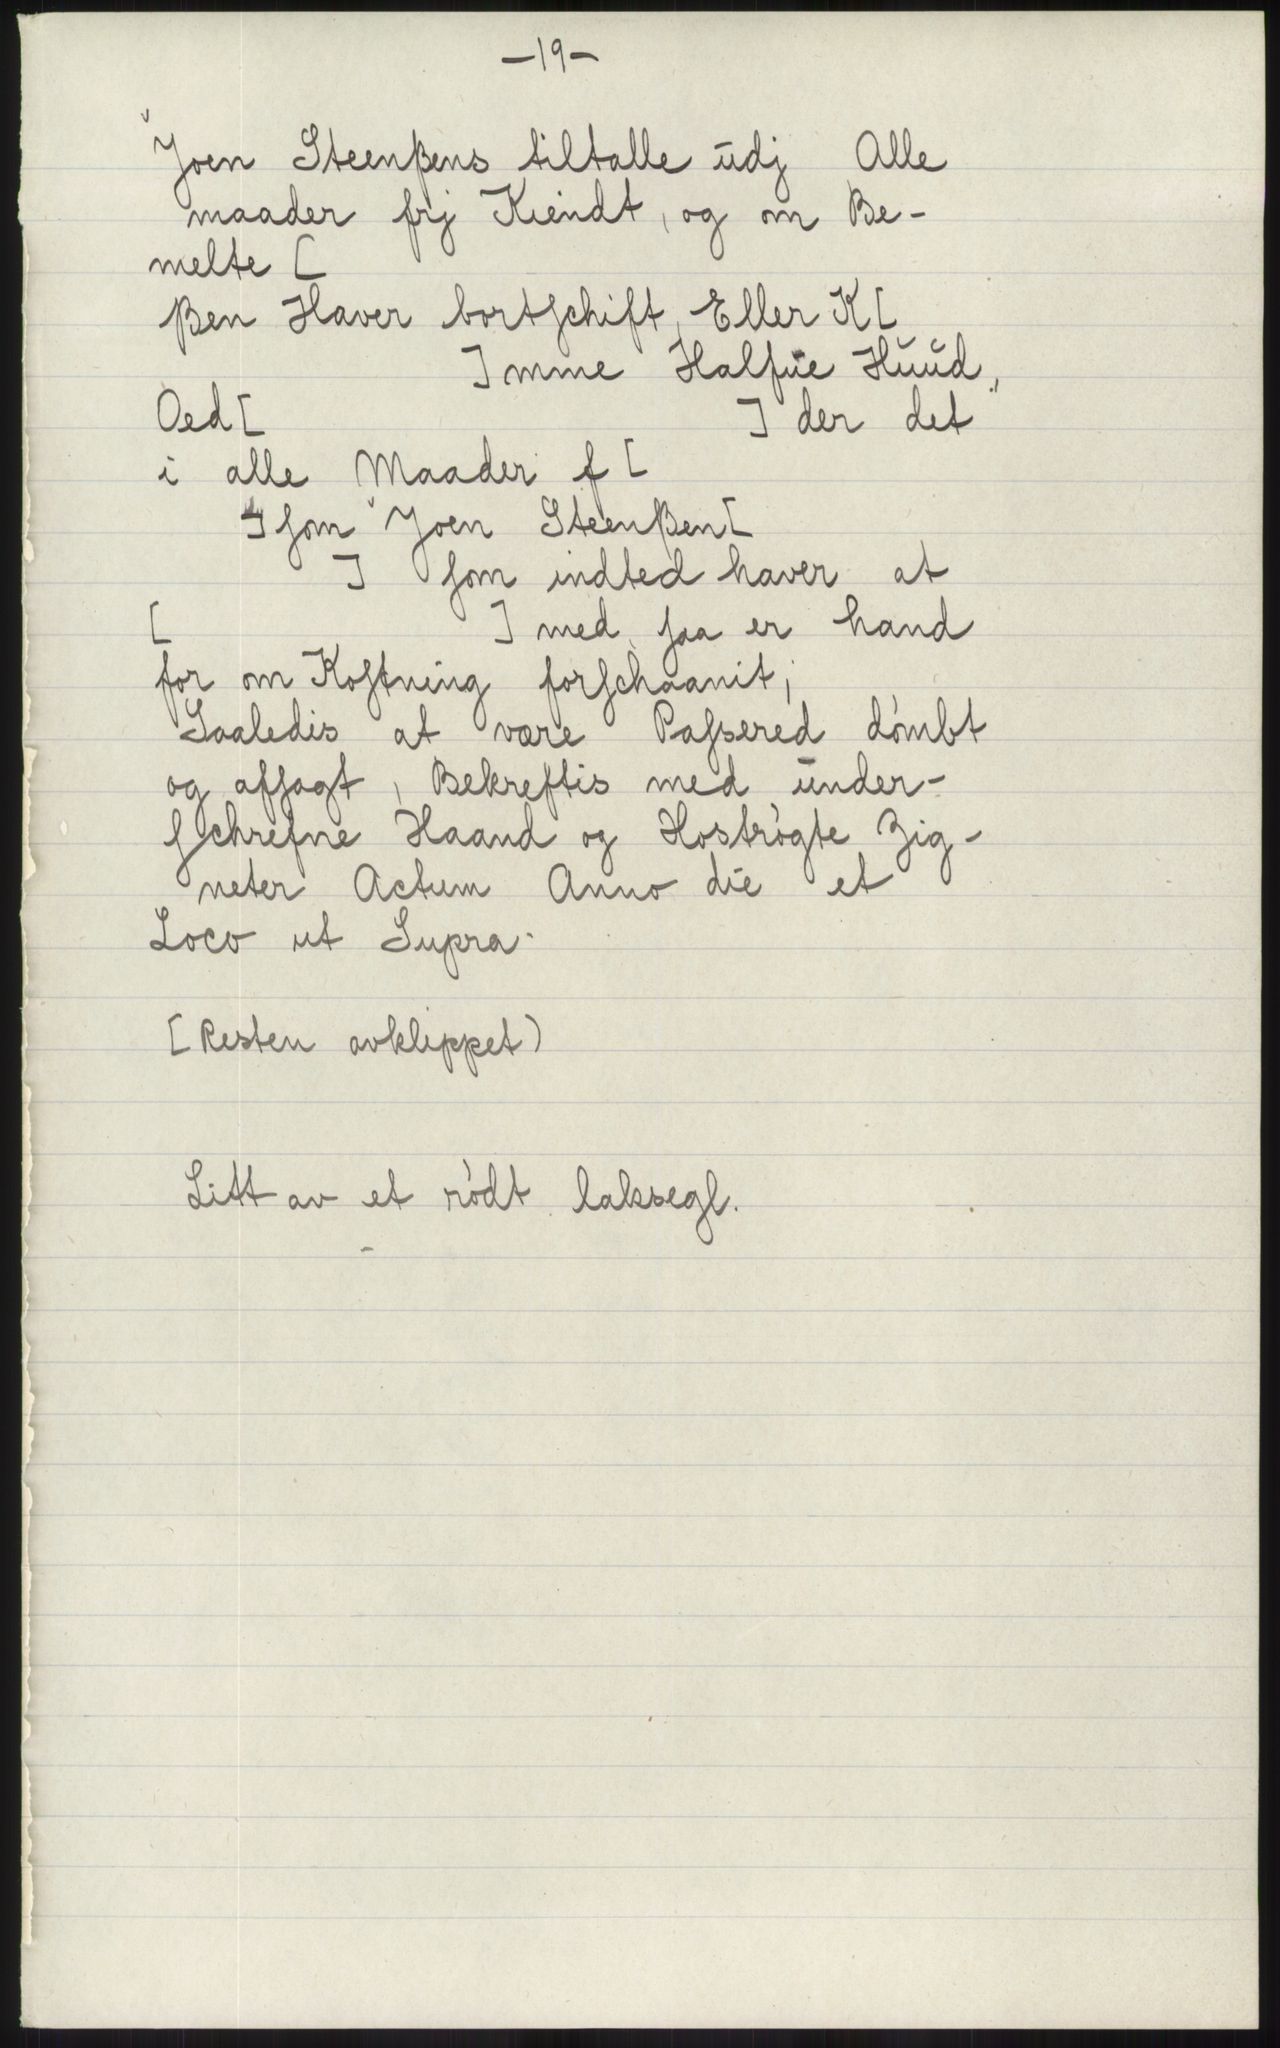 -19-
Joen Steenßens tiltalle udj Alle
maader frj Kiendt, og om Be-
melte [
ßen Haver bortschift, Eller K[
]mme Halfue Huud,
Oed[ ] der det
i alle Maader f[
] som Joen Steenßen[
] som indted haver at
[ ] med, saa er hand
for om Kostning forschaanit;
Saaledis at være Passered dømbt
og afsagt, Bekreftis med under-
schrefne Haand og Hostrøgte Zig-
neter Actum Anno die et
Loco ut Supra.
[Resten avklippet)
Litt av et rødt laksegl.